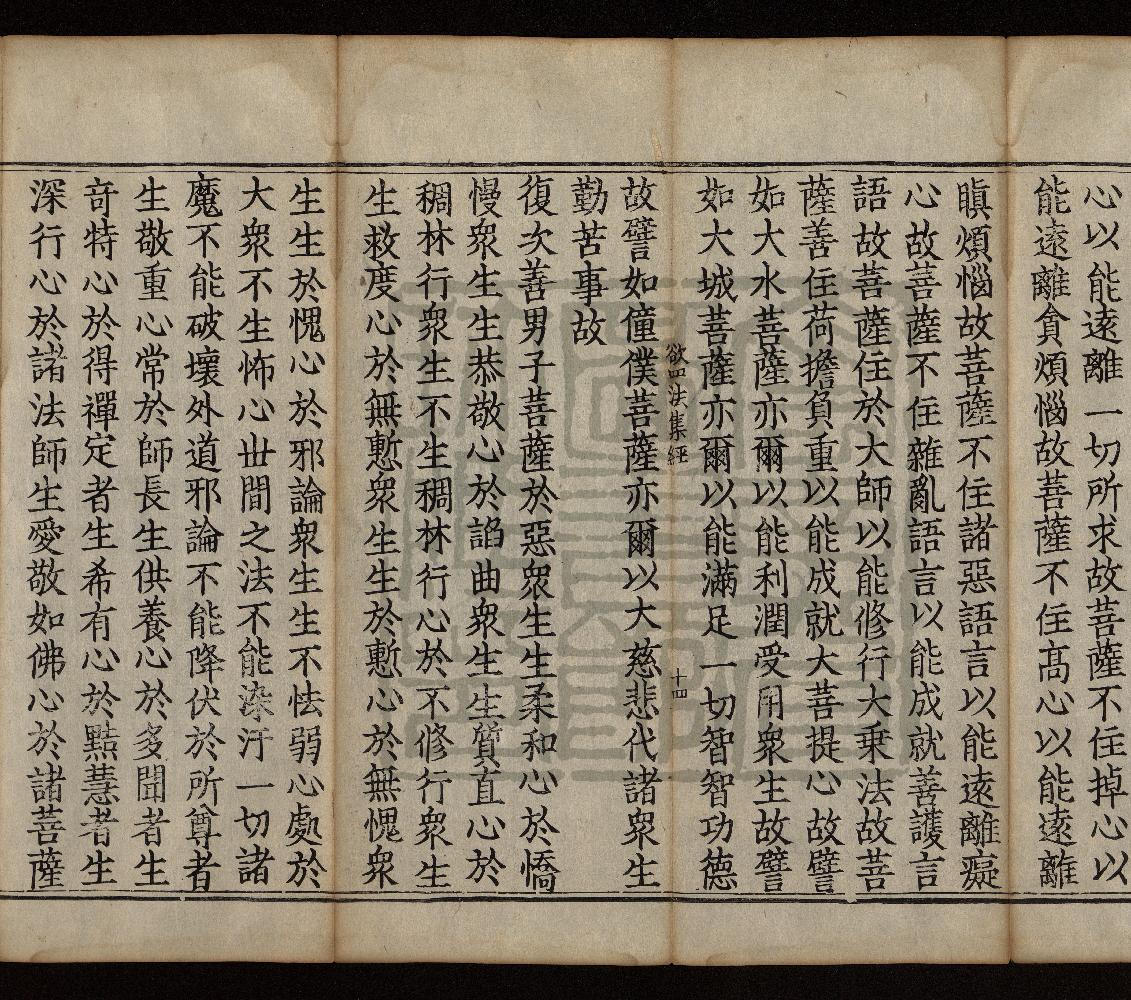 心以能遠離一切所求故菩薩不住掉心以
能遠離貪煩惱故菩薩不住髙心以能遠離
瞋煩惱故菩薩不住諸惡語言以能遠離癡
心故菩薩不住雜亂語言以能成就善護言
語故菩薩住於大師以能修行大乗法故菩
薩善住荷擔負重以能成就大菩提心故譬
如大水菩薩亦爾以能利潤受用衆生故譬
如大城菩薩亦爾以能滿足一切智智功德
欲四法集經 十四
故譬如僮僕菩薩亦爾以大慈悲代諸衆生
勤苦事故
復次善男子菩薩於惡衆生生柔和心於憍
慢衆生生恭敬心於諂曲衆生生質直心於
稠林行衆生不生稠林行心於不修行衆生
生救度心於無慙衆生生於慙心於無愧衆
生生於愧心於邪論衆生生不怯弱心處於
大衆不生怖心丗間之法不能染汙一切諸
魔不能破壞外道邪論不能降伏於所尊者
生敬重心常於師長生供養心於多聞者生
竒特心於得禪定者生希有心於黠慧者生
深行心於諸法師生愛敬如佛心於諸菩薩